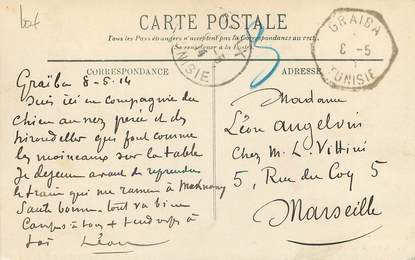 bot
CARTE POSTALE
Tous les Pays étrangers n'acceptent pas la Correspondance au recto.
(Se renseigner à la Poste).
CORRESPONDANCE
ADRESSE
GRAIBA
8 -5
TUNISIE
TUNISIE
Graïba 8-5.14
Suis ici en compagnie du
chien au nez percé et des
hirondelles qui font comme
les moineaux sur la table
Je déjeune avant de reprendre
le train qui me ramène à
Santé bonne tout va bien
à tous + à
toi Léon
Madame
Léon Angelvin
Chez M. L. Vittini
5, Rue du Coq 5
Marseille